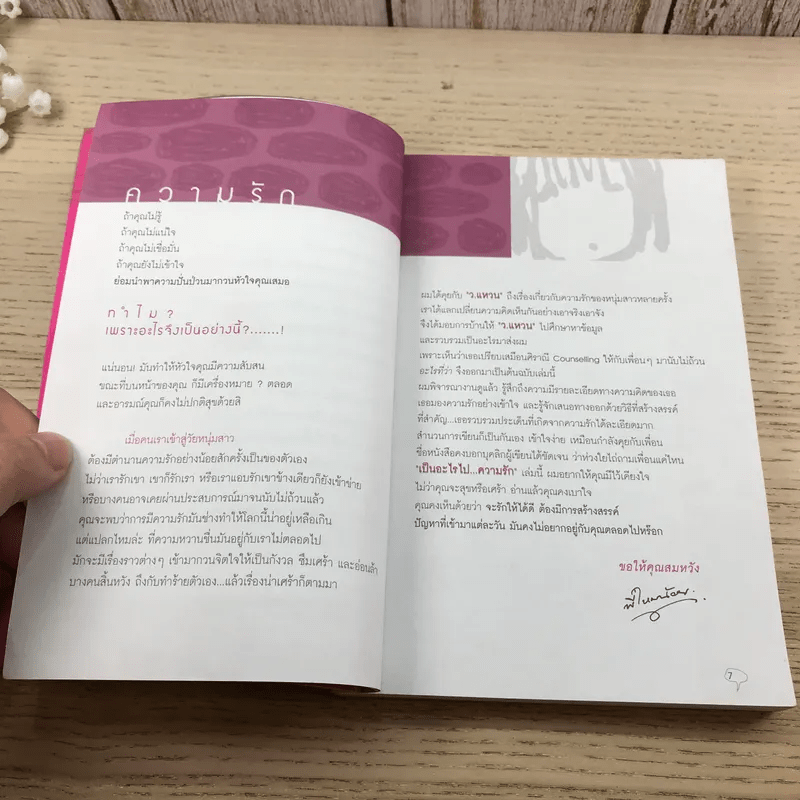 ความรัก
ถ้าคุณไม่รู้
ถ้าคุณไม่แน่ใจ
ถ้าคุณไม่เชื่อมั่น
ถ้าคุณยังไม่เข้าใจ
ย่อมนำพาความปั่นป่วนมากวนหัวใจคุณเสมอ
ทำไม?
เพราะอะไรจึงเป็นอย่างนี้?.......!
แน่นอน! มันทำให้หัวใจคุณมีความสับสน
ขณะที่บนหน้าของคุณ ก็มีเครื่องหมาย ? ตลอด
และอารมณ์คุณก็คงไม่ปกติสุขด้วยสิ
เมื่อคนเราเข้าสู่วัยหนุ่มสาว
ต้องมีตำนานความรักอย่างน้อยสักครั้งเป็นของตัวเอง
ไม่ว่าเรารักเขา เขาก็รักเรา หรือเราแอบรักเขาข้างเดียวก็ยังเข้าข่าย
หรือบางคนอาจเคยผ่านประสบการณ์มาจนนับไม่ถ้วนแล้ว
คุณจะพบว่าการมีความรักมันช่างทำให้โลกนี้น่าอยู่เหลือเกิน
แต่แปลกไหมล่ะ ที่ความหวานชื่นมันอยู่กับเราไม่ตลอดไป
มักจะมีเรื่องราวต่างๆ เข้ามากวนจิตใจให้เป็นกังวล ซึมเศร้า และอ่อนล้า
บางคนสิ้นหวัง ถึงกับทำร้ายตัวเอง...แล้วเรื่องน่าเศร้าก็ตามมา
ผมได้คุยกับ "ว.แหวน" ถึงเรื่องเกี่ยวกับความรักของหนุ่มสาวหลายครั้ง
เราได้แลกเปลี่ยนความคิดเห็นกันอย่างเอาจริงเอาจัง
จึงได้มอบการบ้านให้ "ว.แหวน" ไปศึกษาหาข้อมูล
และรวบรวมเป็นอะไรมาส่งผม
เพราะเห็นว่าเธอเปรียบเสมือนศิราณี Counselling ให้กับเพื่อนๆ มานับไม่ถ้วน
อะไรที่ว่า จึงออกมาเป็นต้นฉบับเล่มนี้
ผมพิจารณางานดูแล้ว รู้สึกถึงความมีรายละเอียดทางความคิดของเธอ
เธอมองความรักอย่างเข้าใจ และรู้จักเสนอทางออกด้วยวิธีที่สร้างสรรค์
ที่สำคัญ...เธอรวบรวมประเด็นที่เกิดจากความรักได้ละเอียดมาก
สำนวนการเขียนก็เป็นกันเอง เข้าใจง่าย เหมือนกำลังคุยกับเพื่อน
ชื่อหนังสือคงบอกบุคลิกผู้เขียนได้ชัดเจน ว่าห่วงใยไถ่ถามเพื่อนแค่ไหน
"เป็นอะไรไป...ความรัก" เล่มนี้ ผมอยากให้คุณมีไว้เคียงใจ
ไม่ว่าคุณจะสุขหรือเศร้า อ่านแล้วคุณคงเบาใจ
คุณคงเห็นด้วยว่า จะรักให้ได้ดี ต้องมีการสร้างสรรค์
ปัญหาที่เข้ามาแต่ละวัน มันคงไม่อยากอยู่กับคุณตลอดไปหร็อก
ขอให้คุณสมหวัง
7